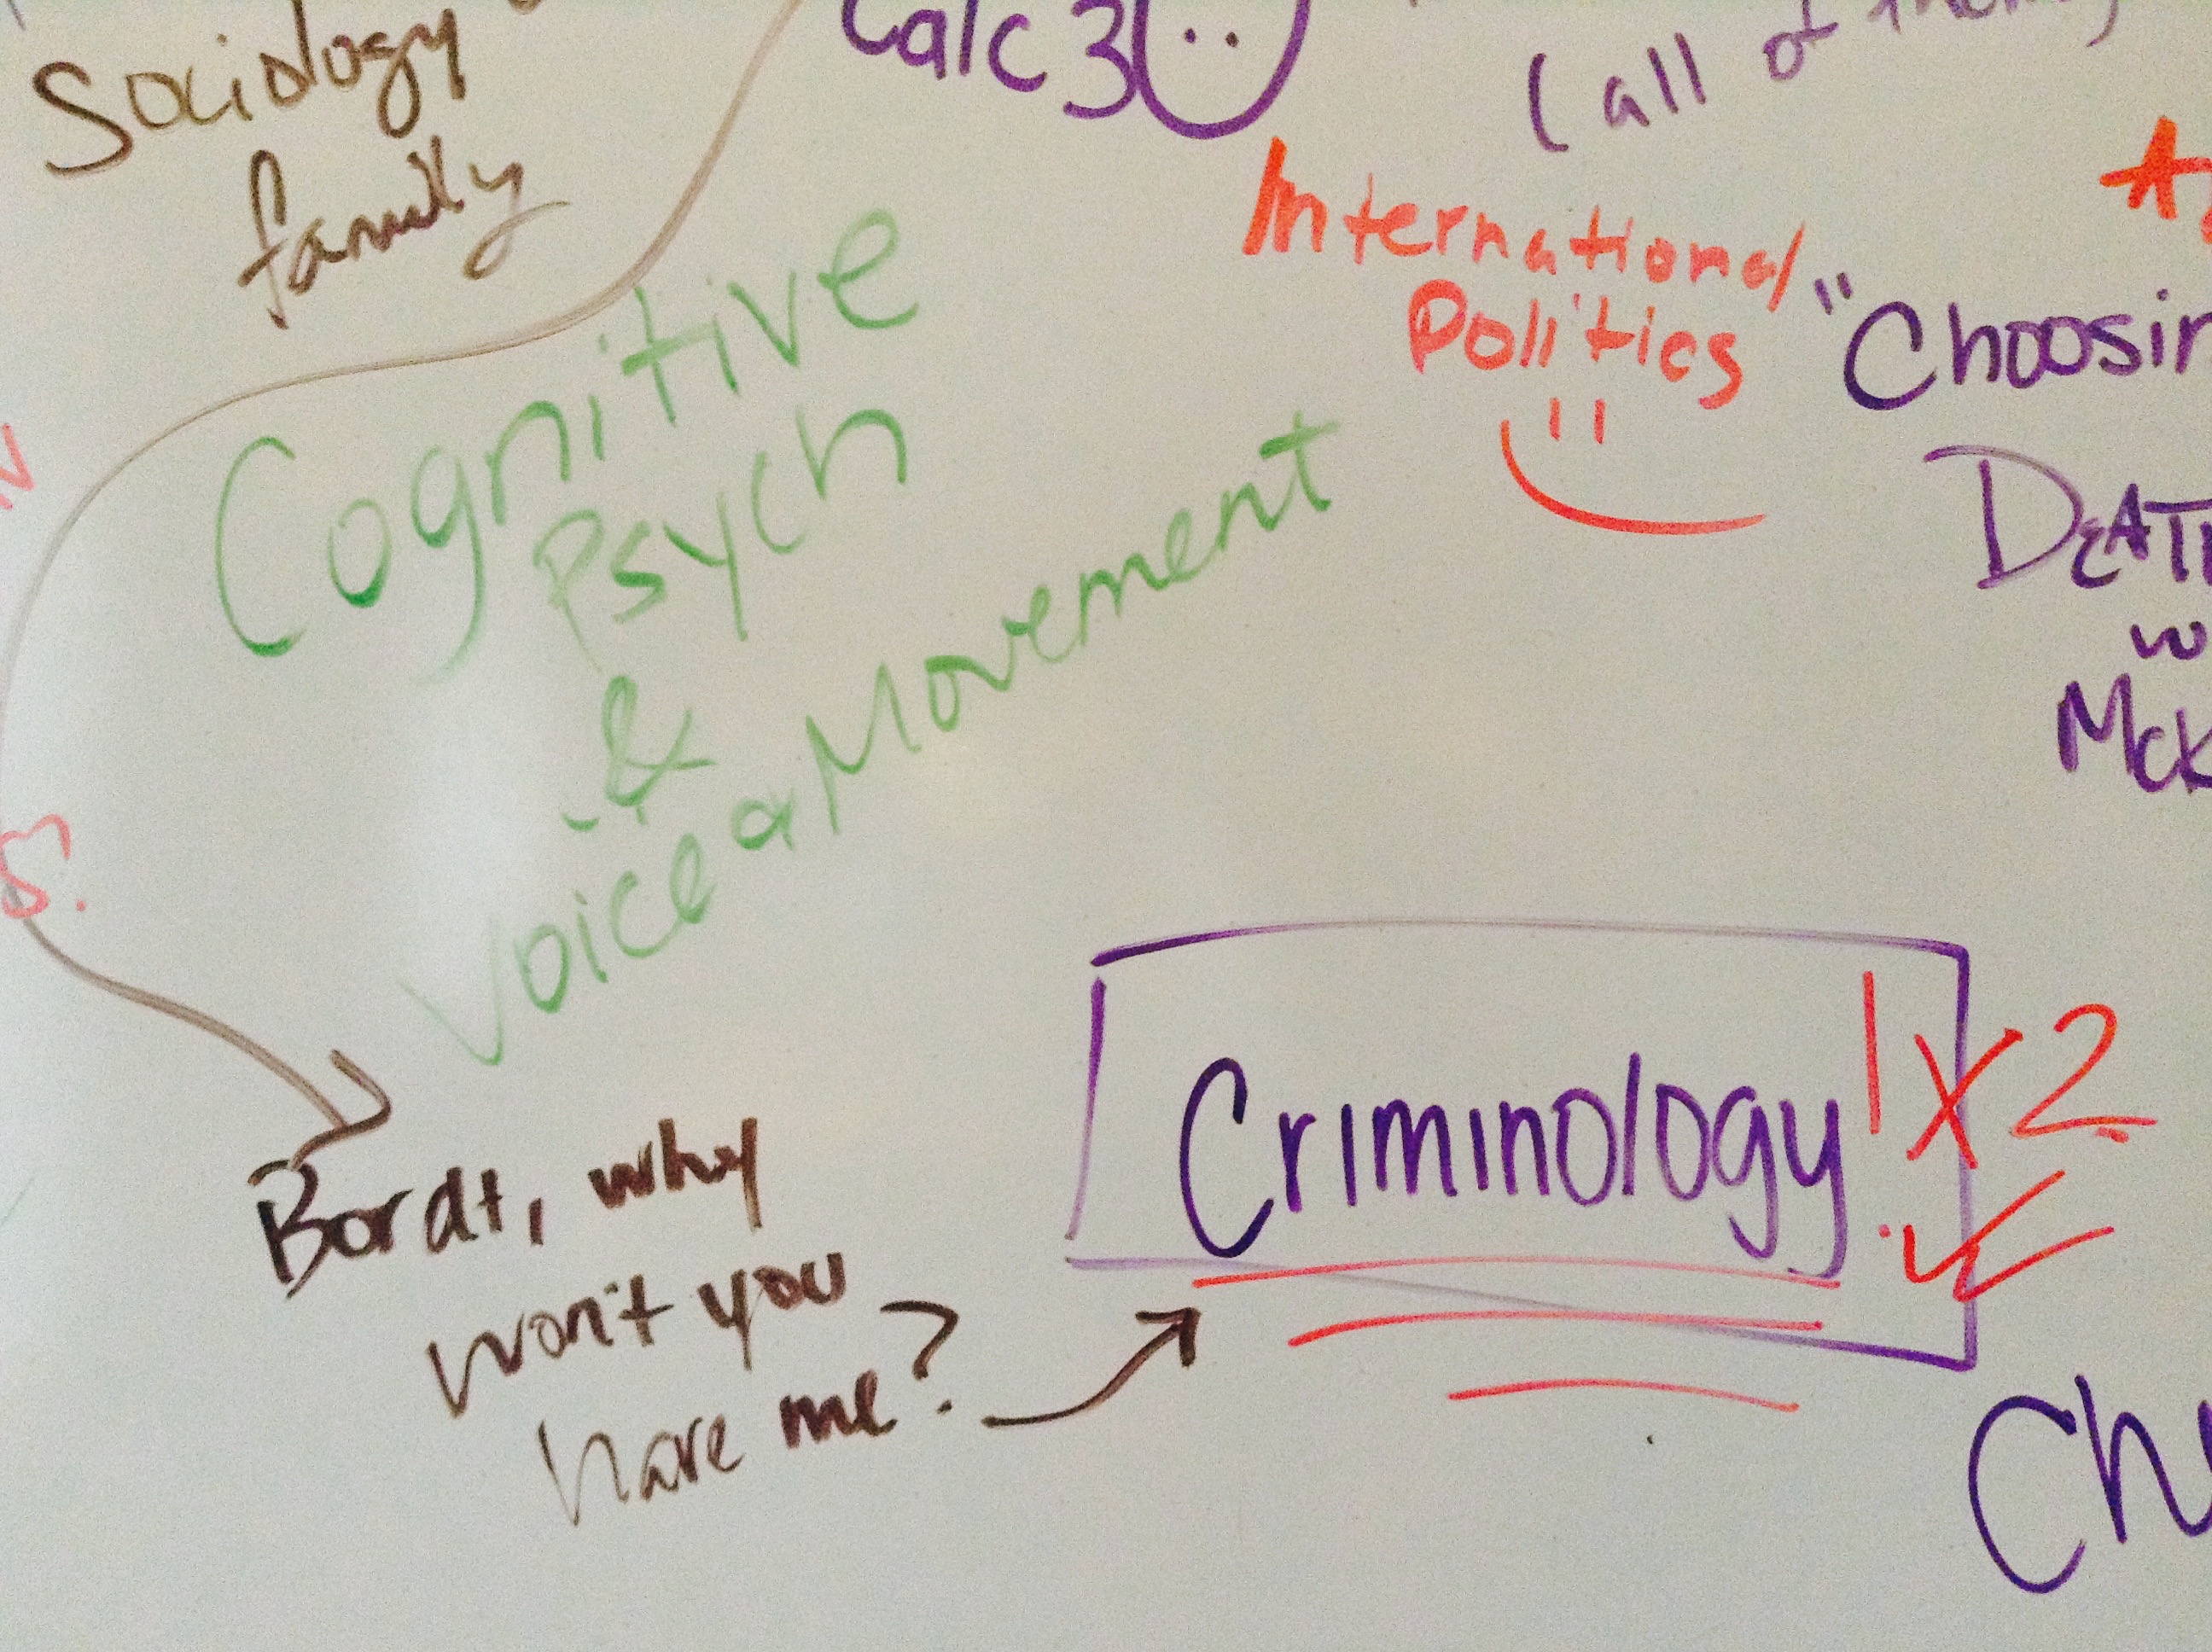 Sociology
family
Calc 3
(all of them)
International
Politics
Cognitive
Psych
&
Voice & Movement
Bordt, why
won't you
have me?
Criminology! X2